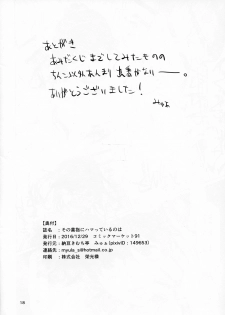 あとがき
あみだくじまでしてみたものの
ちんこ以外あんまり真書かない——。
ありがとうございました!
みゅよ
【奥付】
誌名 : その薬指にハマっているのは
発行日 : 2016/12/29 コミックマーケット91
発行元 : 納豆きむち亭 みゅぁ(pixivID : 149653)
連絡先 : myula_s@hotmail.co.jp
印刷 : 株式会社 栄光様
18